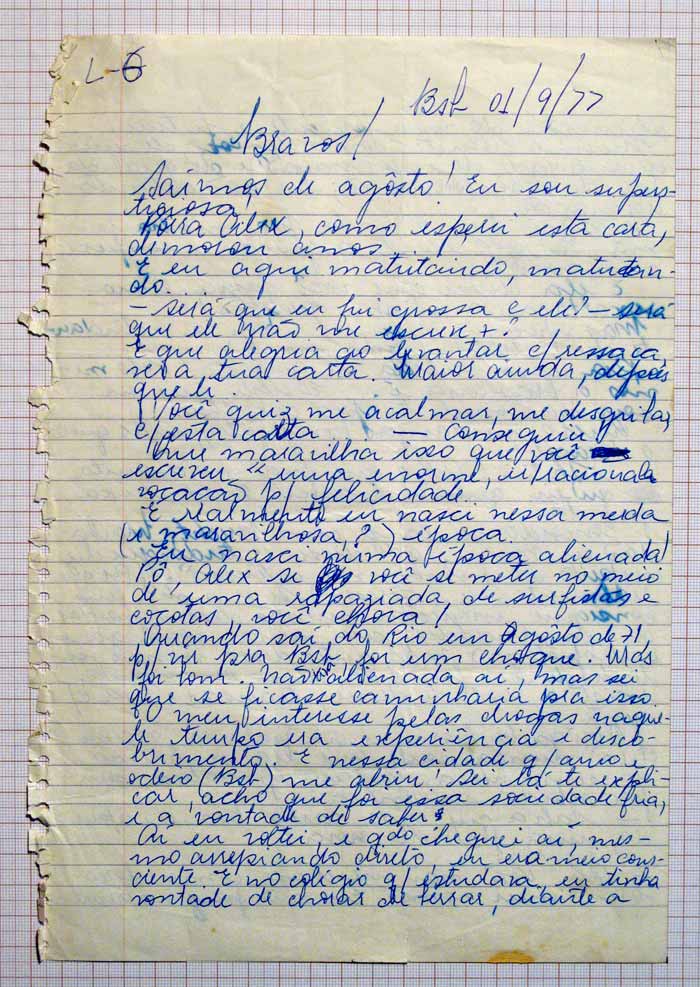 L-6
Bsb 01/9/77
Bravos/
Saímos de agôsto! Eu sou supers-
ticiosa!
Porra Alex, como esperei esta carta,
demorou anos...
E eu aqui matutando, matutan-
do...
— Será que eu fui grossa c/ ele? — será
que ele não me escreve +?
E que alegria ao levantar c/ ressaca,
ver a tua carta. Maior ainda, depois
que li.
Você quiz me acalmar, me desgrilar,
c/ esta carta — Conseguiu!
Que maravilha isso que você
escreveu "uma enorme, irracional
vocação p/ felicidade.
E realmente eu nasci nessa merda
(e maravilhosa,?) época.
Eu nasci numa época alienada!
Pô, Alex se você se meter no meio
de uma rapaziada, de surfistas e
cocotas, você chora!
Quando saí do Rio em Agôsto de 71,
p/ vir pra Bsb, foi um choque. Mas
foi bom. Não alienada aí, mas sei
que se ficasse caminharia pra isso.
O meu interesse pelas drogas naque-
le tempo era experiência e desco-
brimento. E nessa cidade q/ amo e
odeio (Bsb) me abriu! Sei lá te expli-
car, acho que foi essa sociedade fria,
e a vontade de saber
Aí eu voltei, e qdo cheguei aí, mes-
mo arrepiando direto, eu era meio cons-
ciente. E no colégio q/ estudava, eu tinha
vontade de chorar de berrar, diante a